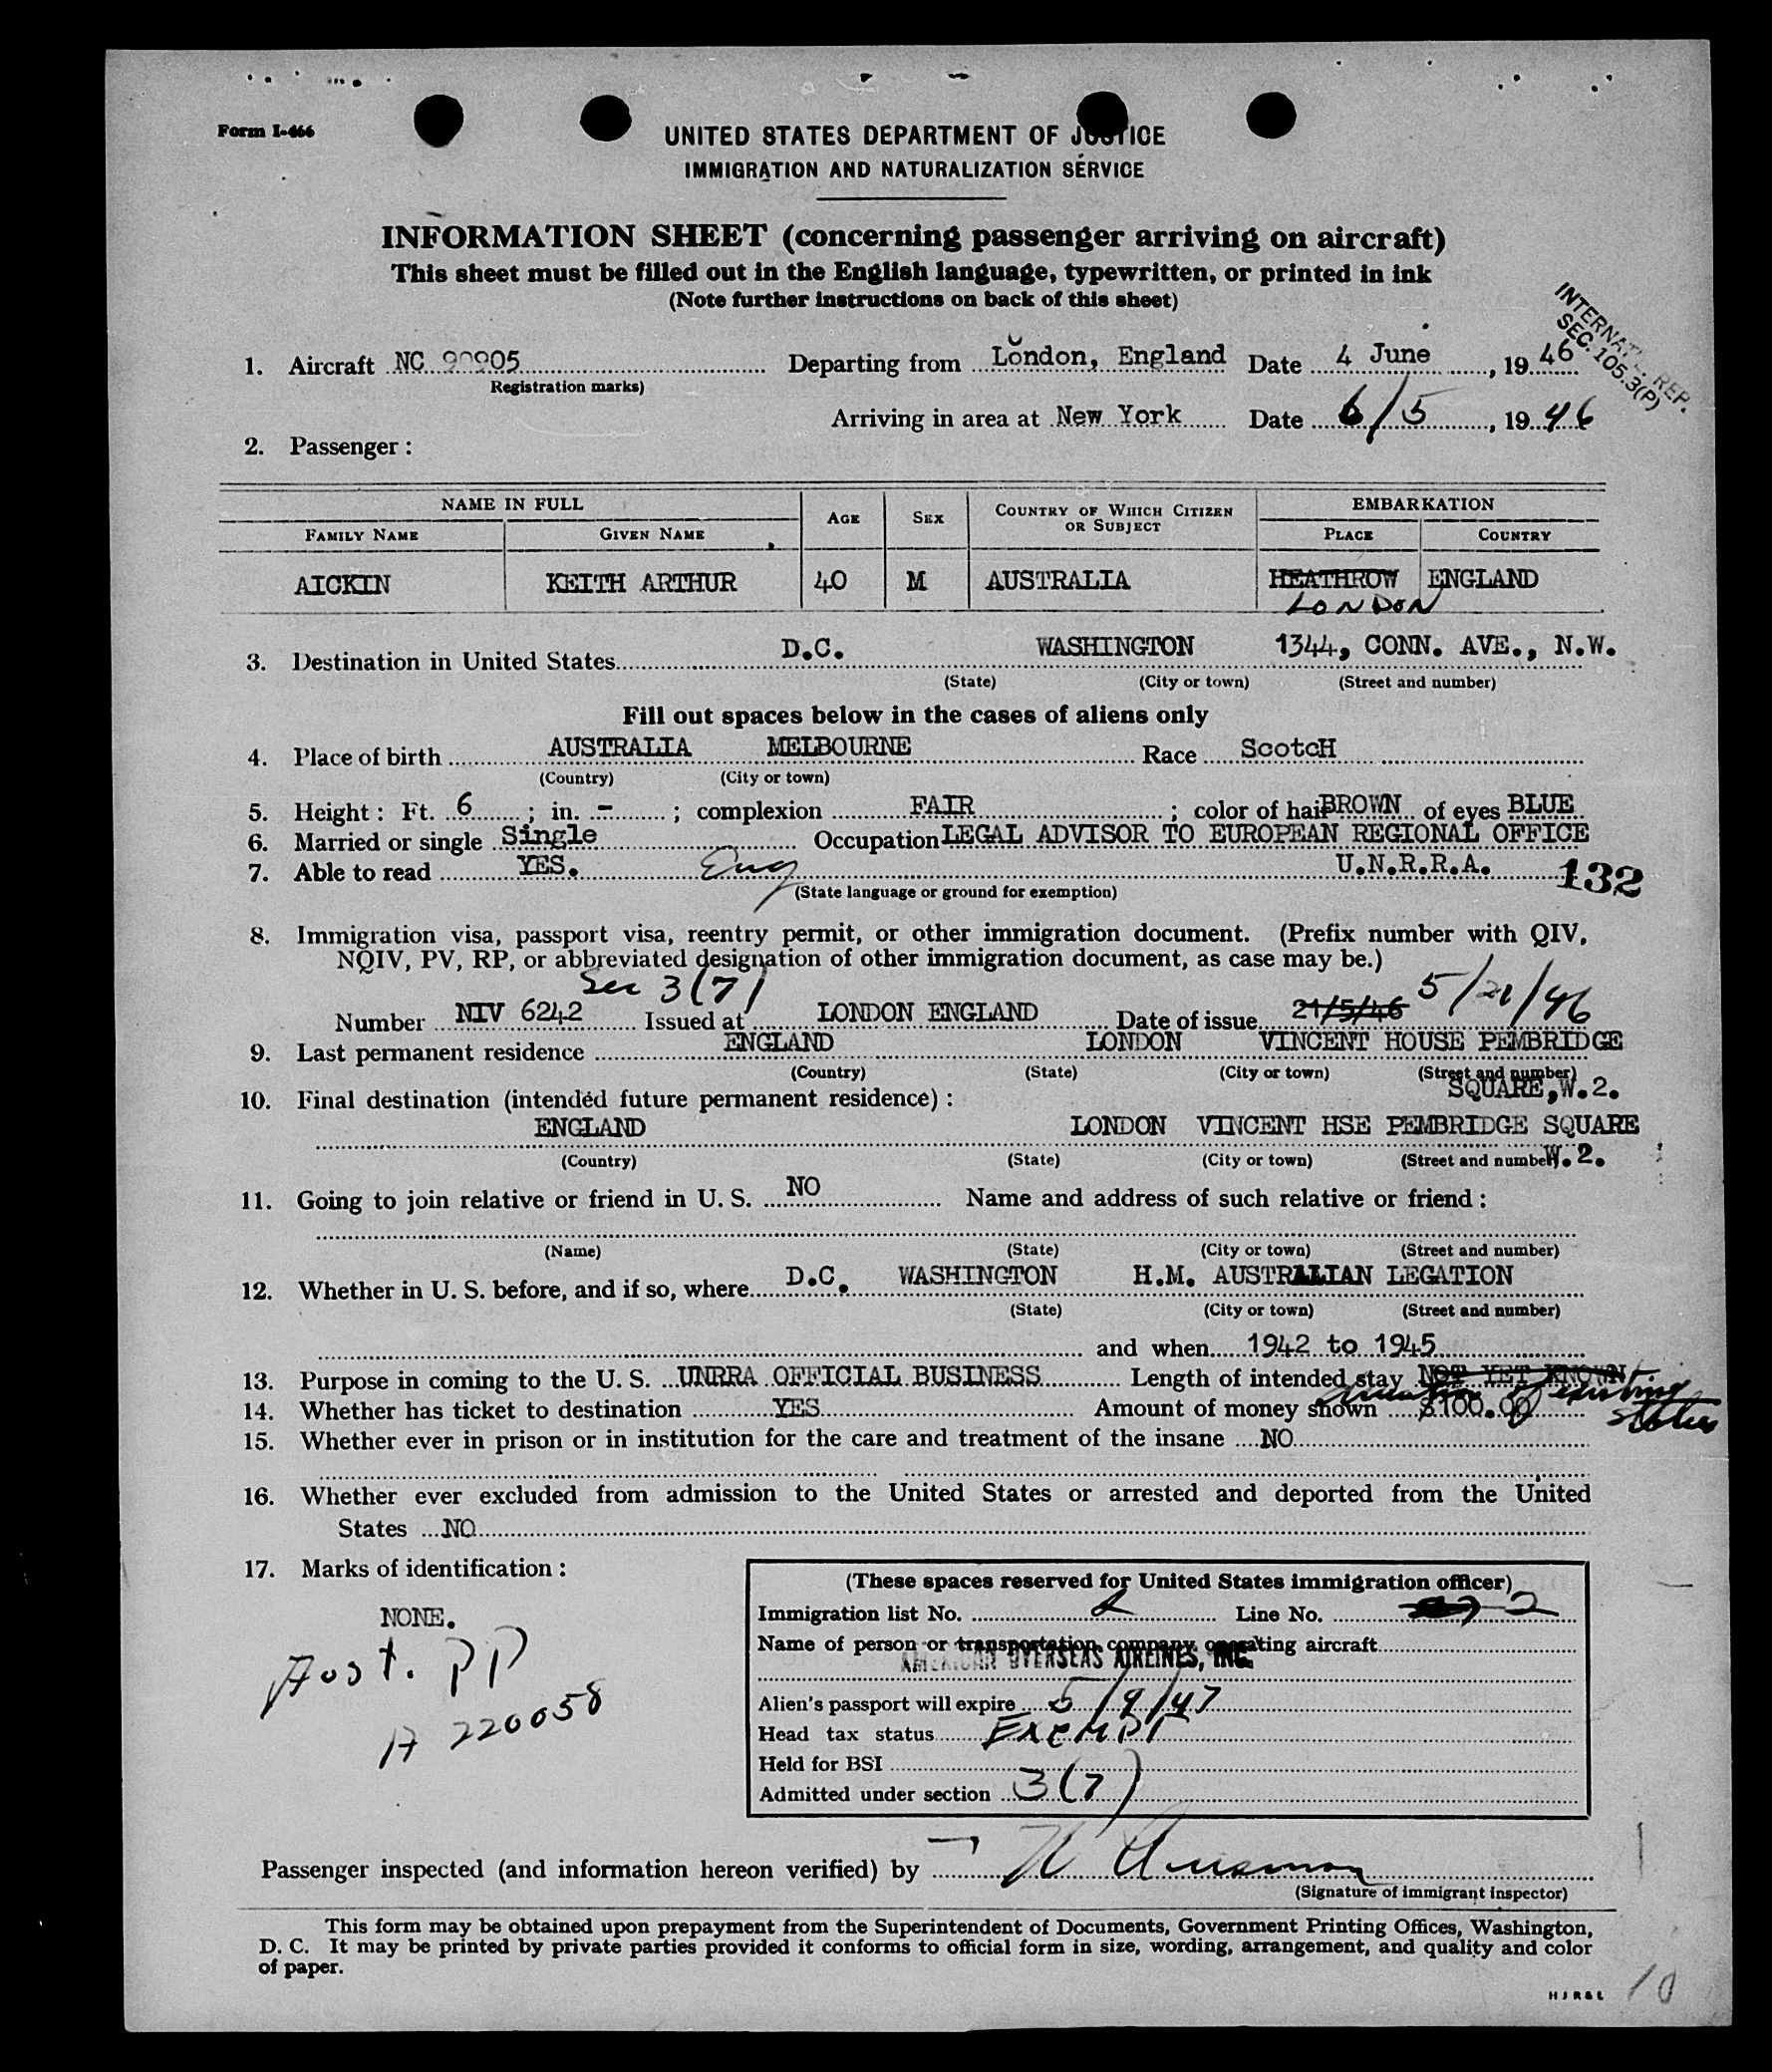 Form I-466
UNITED STATES DEPARTMENT OF JUSTICE
IMMIGRATION AND NATURALIZATION SERVICE
INFORMATION SHEET (concerning passenger arriving on aircraft)
This sheet must be filled out in the English language, typewritten, or printed in ink
(Note further instructions on back of this sheet)
INTERNAT'L. REP.
SEC. 105.3(P)
1. Aircraft NC 90905 Departing from London, England Date 4 June, 1946
Registration marks)
Arriving in area at New York Date 6/5, 1946
2. Passenger:
NAME IN FULL AGE SEX COUNTRY OF WHICH CITIZEN OR SUBJECT EMBARKATION
FAMILY NAME GIVEN NAME PLACE COUNTRY
AICKIN KEITH ARTHUR 40 M AUSTRALIA HEATHROW ENGLAND
LONDON
3. Destination in United States D.C. WASHINGTON 1344, CONN. AVE., N.W.
(State) (City or town) (Street and number)
Fill out spaces below in the cases of aliens only
4. Place of birth AUSTRALIA MELBOURNE Race ScotcH
(Country) (City or town)
5. Height: Ft. 6; in. -; complexion FAIR; color of hair BROWN of eyes BLUE
6. Married or single Single Occupation LEGAL ADVISOR TO EUROPEAN REGIONAL OFFICE
7. Able to read YES. Eng U.N.R.R.A. 132
(State language or ground for exemption)
8. Immigration visa, passport visa, reentry permit, or other immigration document. (Prefix number with QIV,
NQIV, PV, RP, or abbreviated designation of other immigration document, as case may be.)
Sec 3(7)
Number NIV 6242 Issued at LONDON ENGLAND Date of issue 21/5/46 5/21/46
9. Last permanent residence ENGLAND LONDON VINCENT HOUSE PEMBRIDGE
(Country) (State) (City or town) (Street and number)
SQUARE, W.2.
10. Final destination (intended future permanent residence):
ENGLAND LONDON VINCENT HSE PEMBRIDGE SQUARE
(Country) (State) (City or town) (Street and number) W.2.
11. Going to join relative or friend in U. S. NO Name and address of such relative or friend:
(Name) (State) (City or town) (Street and number)
12. Whether in U. S. before, and if so, where D.C. WASHINGTON H.M. AUSTRALIAN LEGATION
(State) (City or town) (Street and number)
and when 1942 to 1945
13. Purpose in coming to the U. S. UNRRA OFFICIAL BUSINESS Length of intended stay NOT YET KNOWN
duration of existing status
14. Whether has ticket to destination YES Amount of money shown $100.00
15. Whether ever in prison or in institution for the care and treatment of the insane NO
16. Whether ever excluded from admission to the United States or arrested and deported from the United
States NO
17. Marks of identification:
NONE.
Aust. PP
A 220058
(These spaces reserved for United States immigration officer)
Immigration list No. 2 Line No. 2
Name of person or transportation company operating aircraft
AMERICAN OVERSEAS AIRLINES, INC.
Alien's passport will expire 5/9/47
Head tax status EXEMPT
Held for BSI
Admitted under section 3(7)
Passenger inspected (and information hereon verified) by
(Signature of immigrant inspector)
This form may be obtained upon prepayment from the Superintendent of Documents, Government Printing Offices, Washington,
D. C. It may be printed by private parties provided it conforms to official form in size, wording, arrangement, and quality and color
of paper.
H J R & L
10